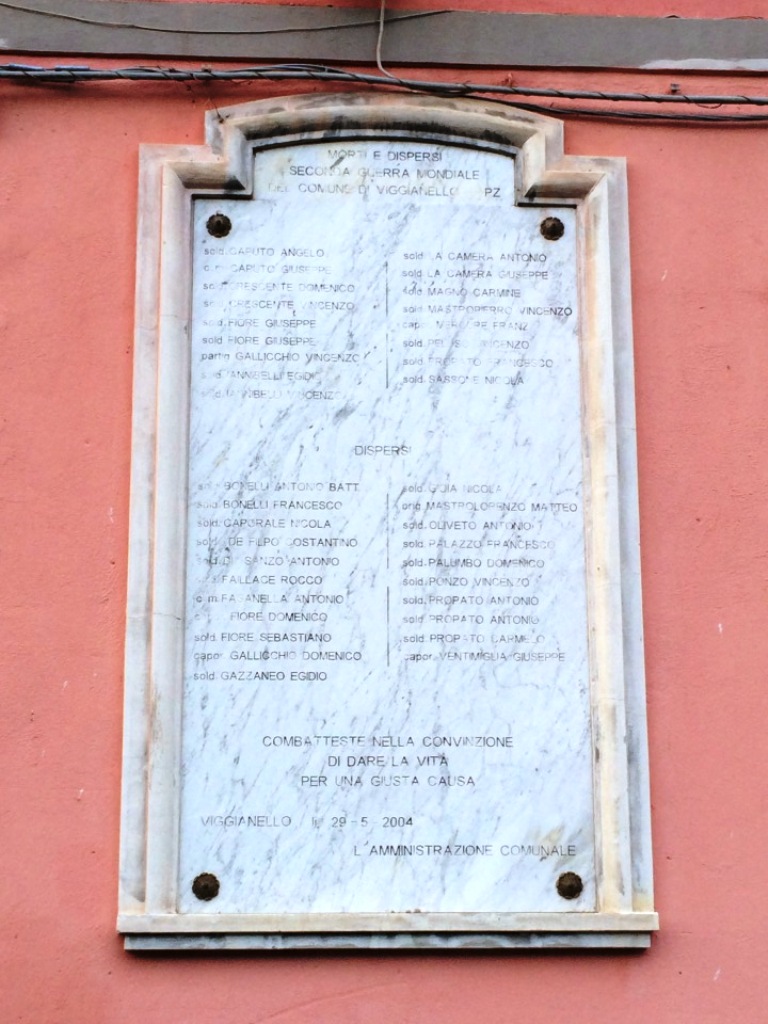 MORTI E DISPERSI
SECONDA GUERRA MONDIALE
DEL COMUNE DI VIGGIANELLO PZ
sold. CAPUTO ANGELO
c.m. CAPUTO GIUSEPPE
sold. CRESCENTE DOMENICO
sold. CRESCENTE VINCENZO
sold. FIORE GIUSEPPE
sold. FIORE GIUSEPPE
partig. GALLICCHIO VINCENZO
sold. IANNIBELLI EGIDIO
sold. IANNIBELLI VINCENZO
sold. LA CAMERA ANTONIO
sold. LA CAMERA GIUSEPPE
sold. MAGNO CARMINE
sold. MASTROPIERRO VINCENZO
capor. FRANZ
sold. VINCENZO
sold. PROPATO FRANCESCO
sold. SASSONE NICOLA
DISPERSI
sold. BONELLI ANTONIO BATT.
sold. BONELLI FRANCESCO
sold. CAPORALE NICOLA
sold. DE FILPO COSTANTINO
sold. DI SANZO ANTONIO
sold. FAILLACE ROCCO
c.m. FASANELLA ANTONIO
FIORE DOMENICO
sold. FIORE SEBASTIANO
capor. GALLICCHIO DOMENICO
sold. GAZZANEO EGIDIO
sold. GIOIA NICOLA
MASTROLORENZO MATTEO
sold. OLIVETO ANTONIO
sold. PALAZZO FRANCESCO
sold. PALUMBO DOMENICO
sold. PONZO VINCENZO
sold. PROPATO ANTONIO
sold. PROPATO ANTONIO
sold. PROPATO CARMELO
capor. VENTIMIGLIA GIUSEPPE
COMBATTESTE NELLA CONVINZIONE
DI DARE LA VITA
PER UNA GIUSTA CAUSA
VIGGIANELLO lì 29-5-2004
L'AMMINISTRAZIONE COMUNALE